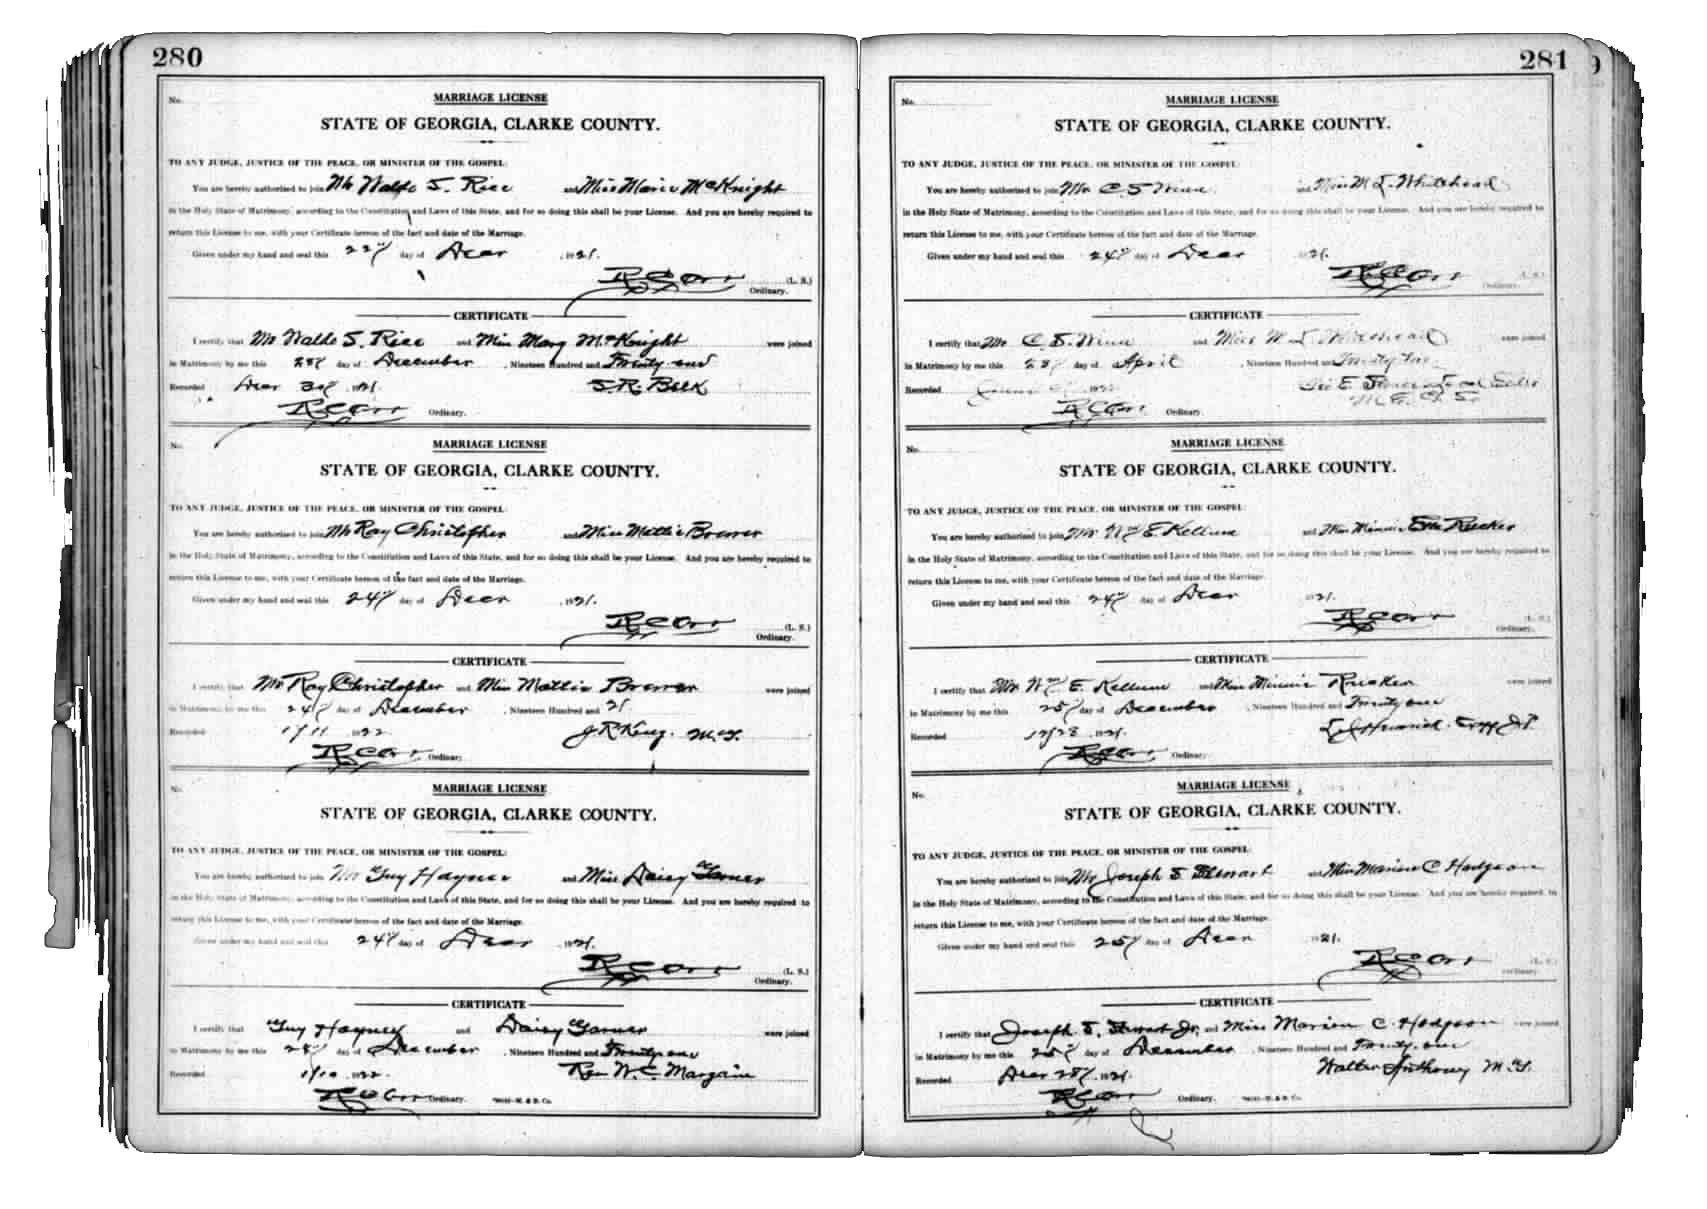 280
No.
MARRIAGE LICENSE
STATE OF GEORGIA, CLARKE COUNTY.
TO ANY JUDGE, JUSTICE OF THE PEACE, OR MINISTER OF THE GOSPEL:
You are hereby authorized to join Mr Waldo S. Rice and Miss Marie McKnight
in the Holy State of Matrimony, according to the Constitution and Laws of this State, and for so doing this shall be your License. And you are hereby required to
return this License to me, with your Certificate hereon of the fact and date of the Marriage.
Given under my hand and seal this 22" day of Decr , 1921.
R C Orr (L. S.)
Ordinary.
CERTIFICATE
I certify that Mr Waldo S. Rice and Miss Mary McKnight were joined
in Matrimony by me this day of December , Nineteen Hundred and Twenty one
Recorded Decr 1921. S. R. Belk
R C Orr Ordinary.
No.
MARRIAGE LICENSE
STATE OF GEORGIA, CLARKE COUNTY.
TO ANY JUDGE, JUSTICE OF THE PEACE, OR MINISTER OF THE GOSPEL:
You are hereby authorized to join Mr Ray Christopher and Miss Mattie Brewer
in the Holy State of Matrimony, according to the Constitution and Laws of this State, and for so doing this shall be your License. And you are hereby required to
return this License to me, with your Certificate hereon of the fact and date of the Marriage.
Given under my hand and seal this 24" day of Decr , 1921.
R C Orr (L. S.)
Ordinary.
CERTIFICATE
I certify that Mr Ray Christopher and Miss Mattie Brewer were joined
in Matrimony by me this 24" day of December , Nineteen Hundred and 21
Recorded 1/11 1922 J. R. King. M.G.
R C Orr Ordinary.
No.
MARRIAGE LICENSE
STATE OF GEORGIA, CLARKE COUNTY.
TO ANY JUDGE, JUSTICE OF THE PEACE, OR MINISTER OF THE GOSPEL:
You are hereby authorized to join Mr Guy Haynes and Miss Daisy Garner
in the Holy State of Matrimony, according to the Constitution and Laws of this State, and for so doing this shall be your License. And you are hereby required to
return this License to me, with your Certificate hereon of the fact and date of the Marriage.
Given under my hand and seal this 24" day of Decr , 1921.
R C Orr (L. S.)
Ordinary.
CERTIFICATE
I certify that Guy Haynes and Daisy Garner were joined
in Matrimony by me this day of December , Nineteen Hundred and Twenty one
Recorded 1/10 1922. Rev W. C.
R C Orr Ordinary.
281
No.
MARRIAGE LICENSE
STATE OF GEORGIA, CLARKE COUNTY.
TO ANY JUDGE, JUSTICE OF THE PEACE, OR MINISTER OF THE GOSPEL:
You are hereby authorized to join Mr C S Winn and Miss M L Whitehead
in the Holy State of Matrimony, according to the Constitution and Laws of this State, and for so doing this shall be your License. And you are hereby required to
return this License to me, with your Certificate hereon of the fact and date of the Marriage.
Given under my hand and seal this 24" day of Decr 1921.
R C Orr (L. S.)
Ordinary.
CERTIFICATE
I certify that Mr C. S. Winn and Miss M L Whitehead were joined
in Matrimony by me this day of April , Nineteen Hundred and Twenty
Recorded 1922
R C Orr Ordinary.
No.
MARRIAGE LICENSE
STATE OF GEORGIA, CLARKE COUNTY.
TO ANY JUDGE, JUSTICE OF THE PEACE, OR MINISTER OF THE GOSPEL:
You are hereby authorized to join Mr Wm E Kellum and Miss Minnie Rucker
in the Holy State of Matrimony, according to the Constitution and Laws of this State, and for so doing this shall be your License. And you are hereby required to
return this License to me, with your Certificate hereon of the fact and date of the Marriage.
Given under my hand and seal this 24" day of Decr 1921.
R C Orr (L. S.)
Ordinary.
CERTIFICATE
I certify that Mr Wm E. Kellum and Miss Minnie Rucker were joined
in Matrimony by me this 25" day of December , Nineteen Hundred and Twenty one
Recorded 12/28 1921.
R C Orr Ordinary.
No.
MARRIAGE LICENSE
STATE OF GEORGIA, CLARKE COUNTY.
TO ANY JUDGE, JUSTICE OF THE PEACE, OR MINISTER OF THE GOSPEL:
You are hereby authorized to join Mr Joseph S Stewart and Miss Marion C Hodgson
in the Holy State of Matrimony, according to the Constitution and Laws of this State, and for so doing this shall be your License. And you are hereby required to
return this License to me, with your Certificate hereon of the fact and date of the Marriage.
Given under my hand and seal this 25" day of Decr 1921.
R C Orr (L. S.)
Ordinary.
CERTIFICATE
I certify that Joseph S. Stewart Jr. and Miss Marion C. Hodgson were joined
in Matrimony by me this 25" day of December , Nineteen Hundred and Twenty-one
Recorded Decr 28" 1921. Walter Anthony M.G.
R C Orr Ordinary.